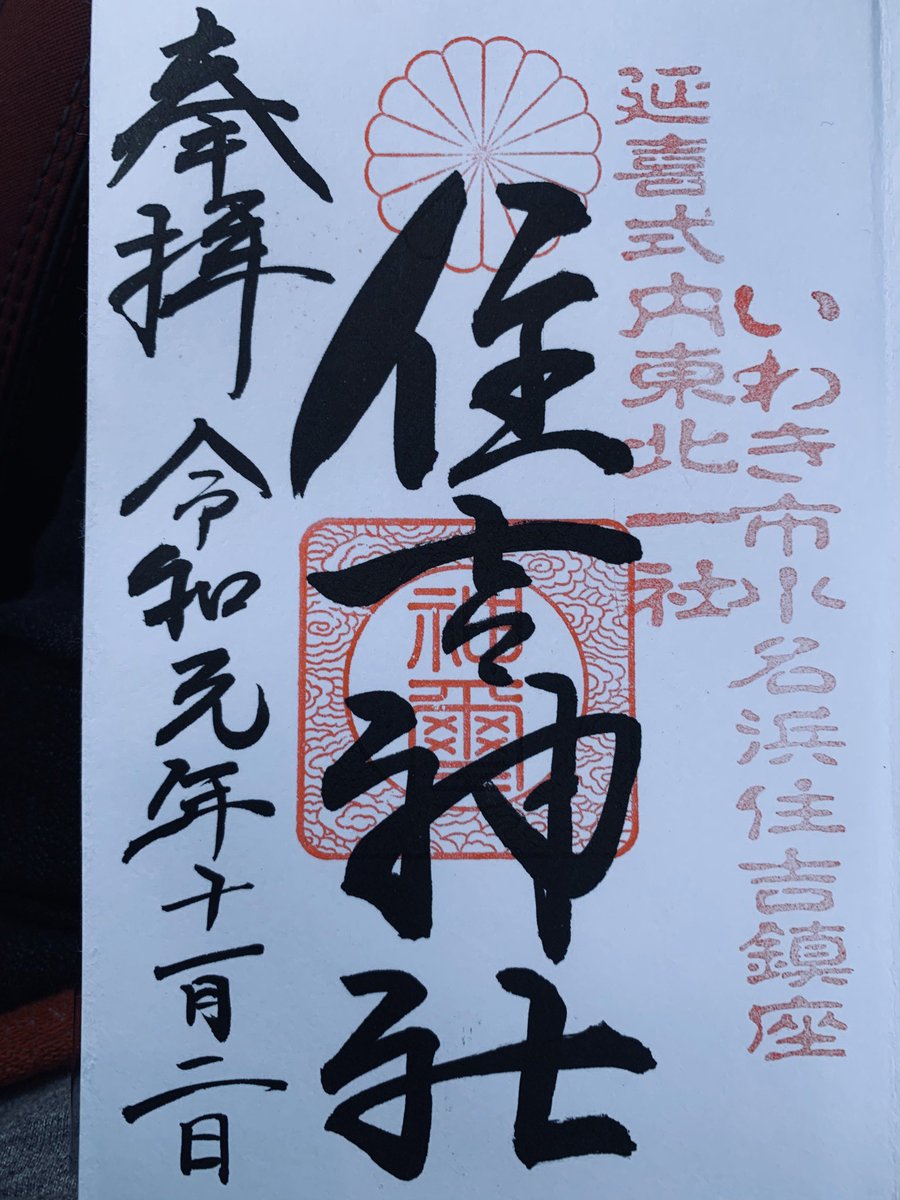 いわき市小名浜住吉鎮座
延喜式内東北一社
住吉神社
神璽
奉拝
令和元年十一月二日